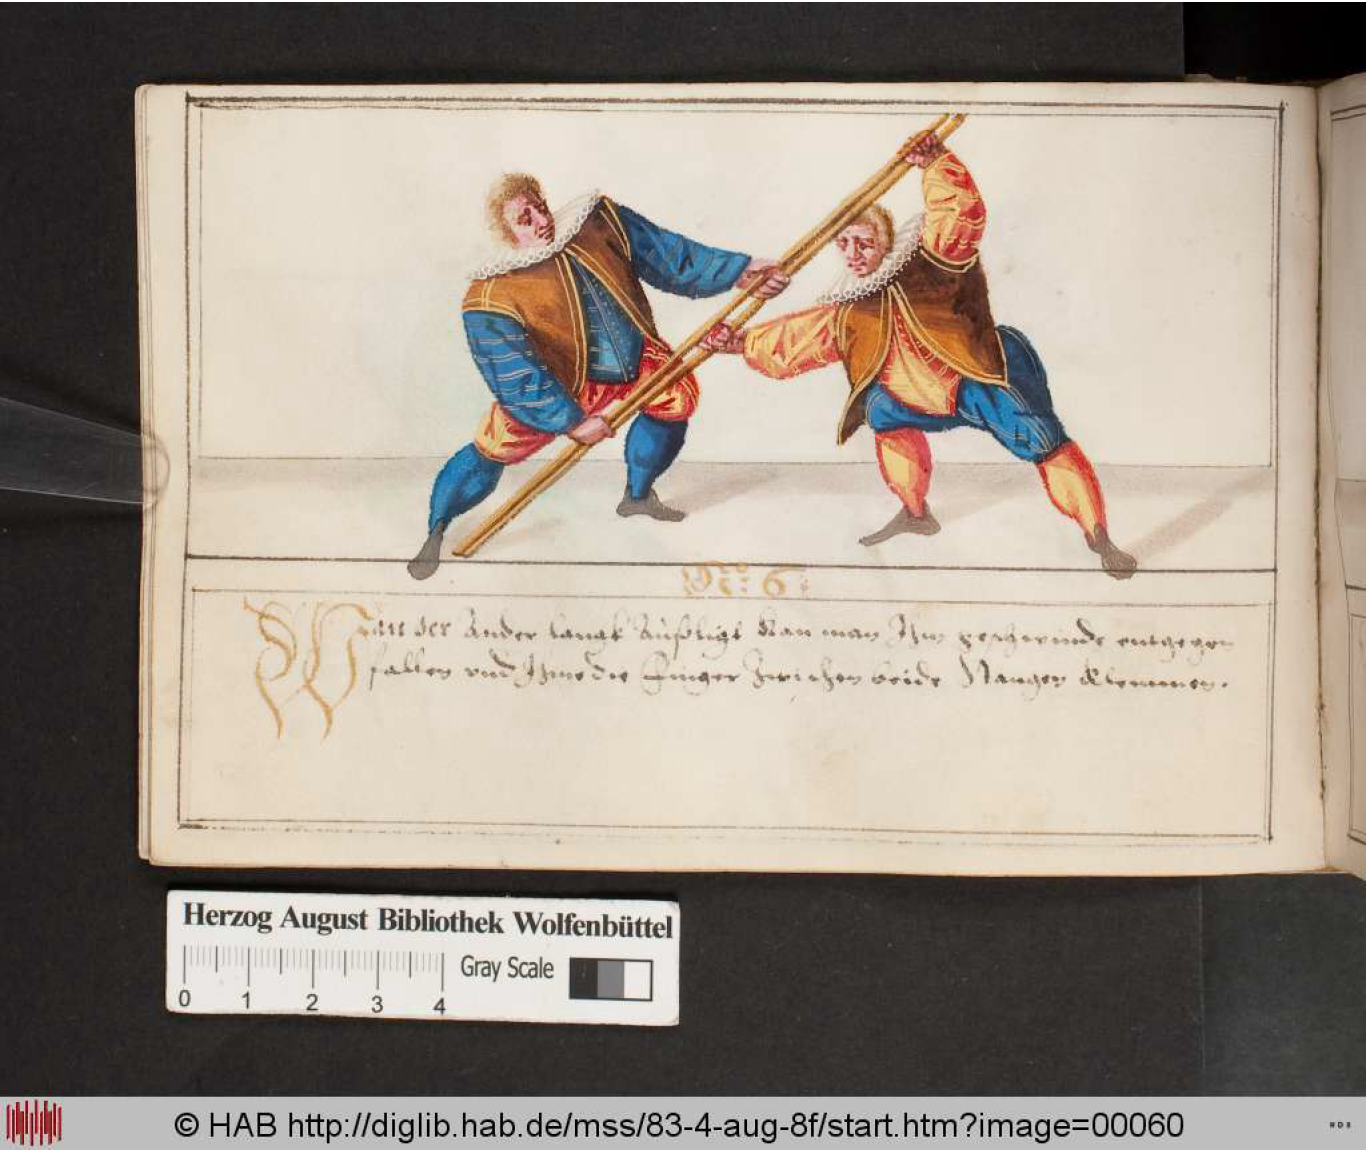 N: 6:
Wan der Ander langk Außligt Kan man Ihm geschwinde entgegen
fallen vnd Ihme die Finger Zwischen beide Stangen Klemmen.
Herzog August Bibliothek Wolfenbüttel
Gray Scale
0 1 2 3 4
© HAB http://diglib.hab.de/mss/83-4-aug-8f/start.htm?image=00060